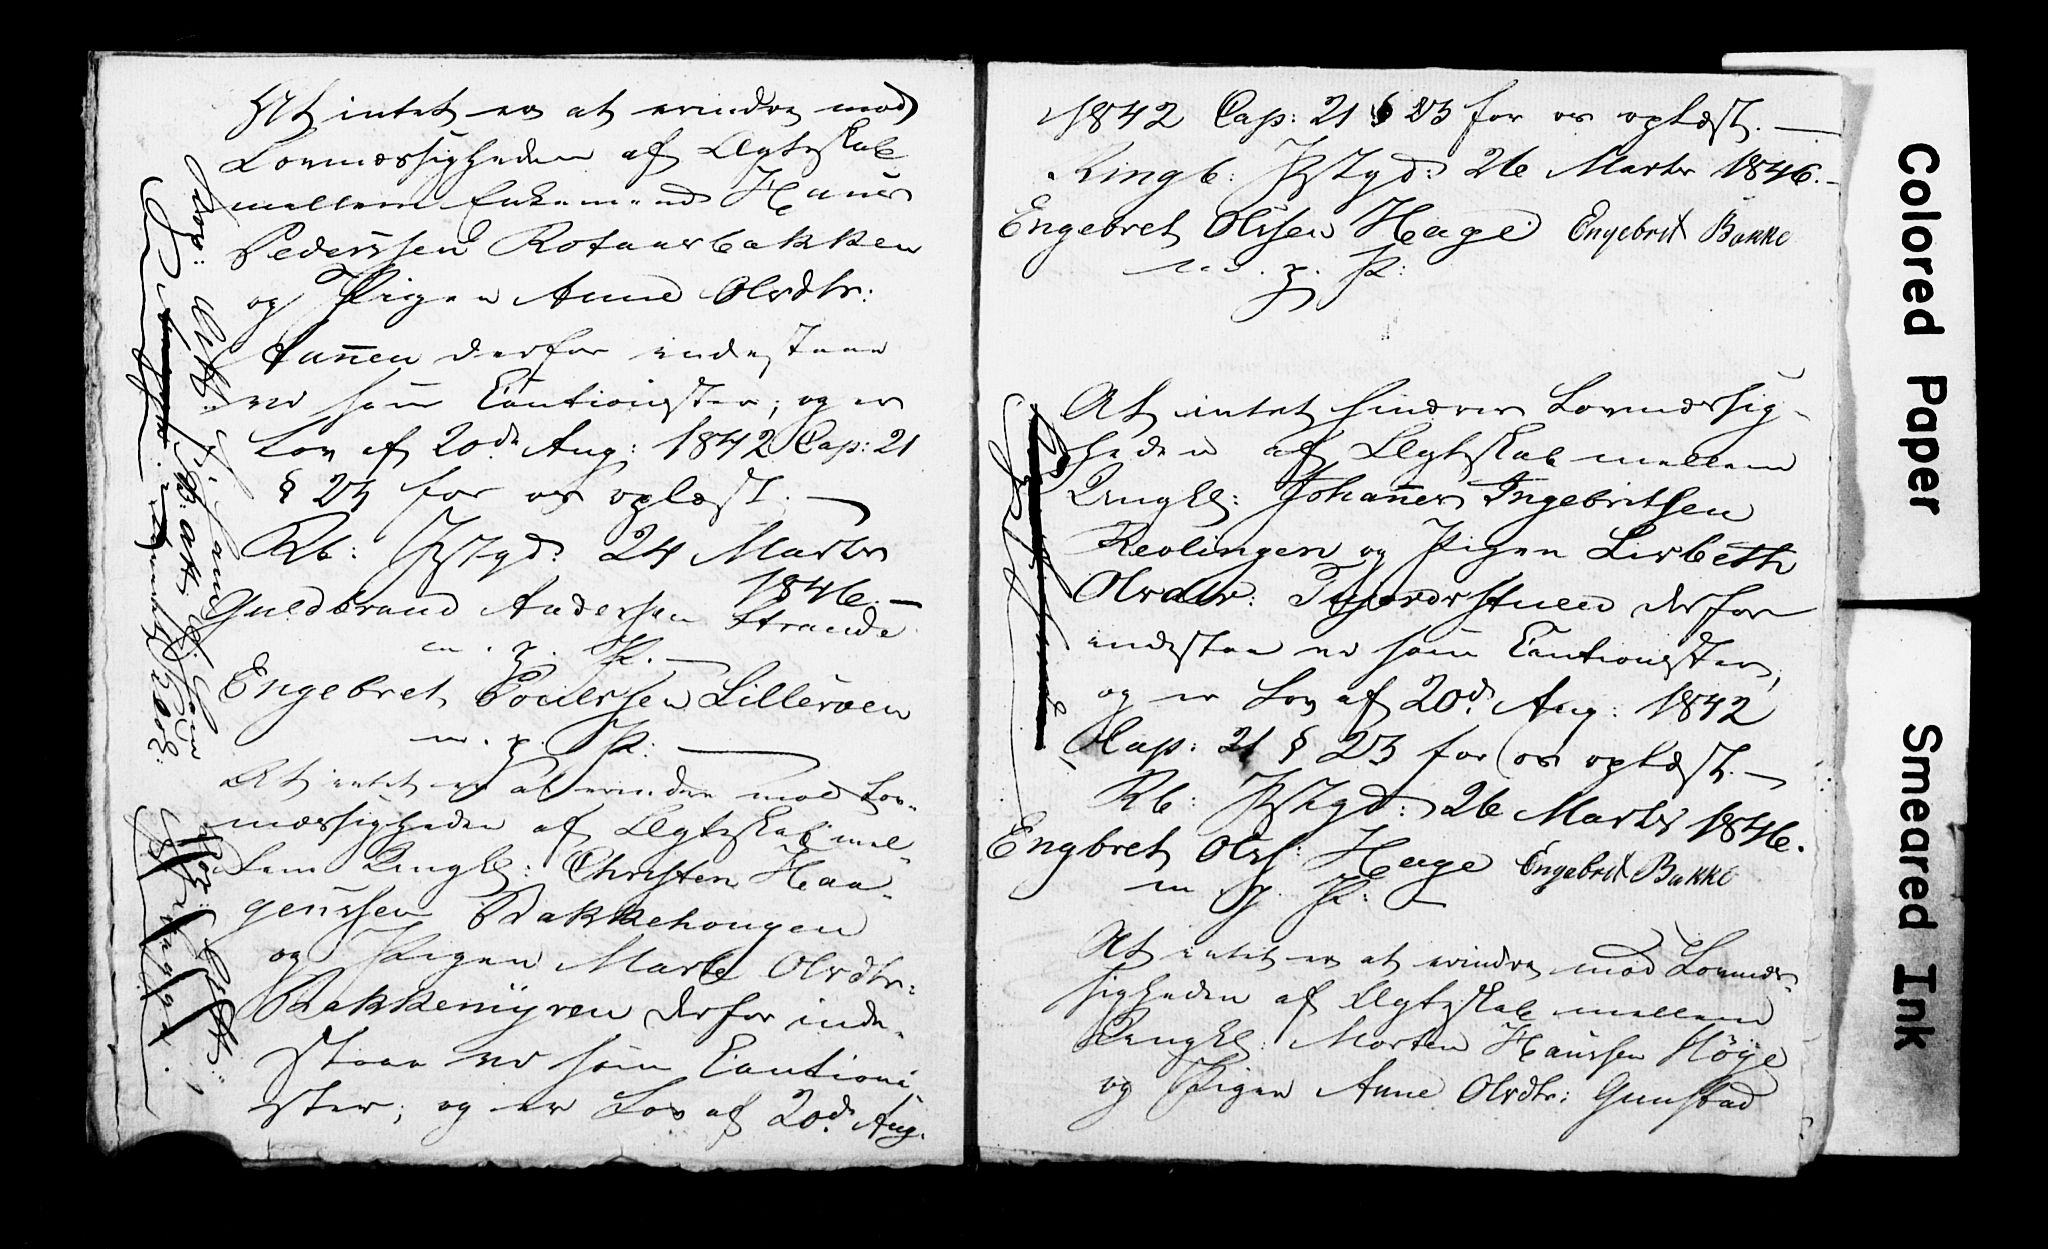 At intet er at erindre mod
Lovmæssigheden af Ægteskab
mellem Enkemand Hans
Pederssen Rotaasbakken
og Pigen Anne Olsdtr:
Kannen derfor indestaae
vi som Cautionister; og er
Lov af 20de Aug: 1842 Cap: 21
§ 23 for os oplæst. —
Rb: Pstgd: 24 Marts
1846. —
Guldbrand Andersen Strande
m. p. P. —
Engebret Poulssen Lillerøen
m. p. P: —
At intet er at erindre mod Lov-
mæssigheden af Ægteskab mel-
lem Ungkl: Christen Haa-
genssen Bakkehougen
og Pigen Marte Olsdtr:
Bakkemyren derfor inde-
staae vi som Cautioni-
ster; og er Lov af 20de Aug.
1842 Cap: 21 § 23 for os oplæst. —
Ringb: Pstgd: 26 Marts 1846. —
Engebret Olssen Hage Engebret Bakke
m. p. P:
At intet hindrer Lovmæssig-
heden af Ægteskab mellem
Ungkl: Johannes Ingebritsen
Kevlingen og Pigen Lisbeth
Olsdtr: derfor
indestaa vi som Cautionister,
og er Lov af 20de Aug: 1842
Cap: 21 § 23 for os oplæst. —
Rb: Pstgd: 26 Marts 1846.
Engbret Ols: Hage Engebret Bakke
m. p. P: —
At intet er at erindre mod Lovmæs-
sigheden af Ægteskab mellem
Ungkl: Morten Hanssen Høye
og Pigen Anne Olsdtr: Gunstad
Colored Paper
Smeared Ink